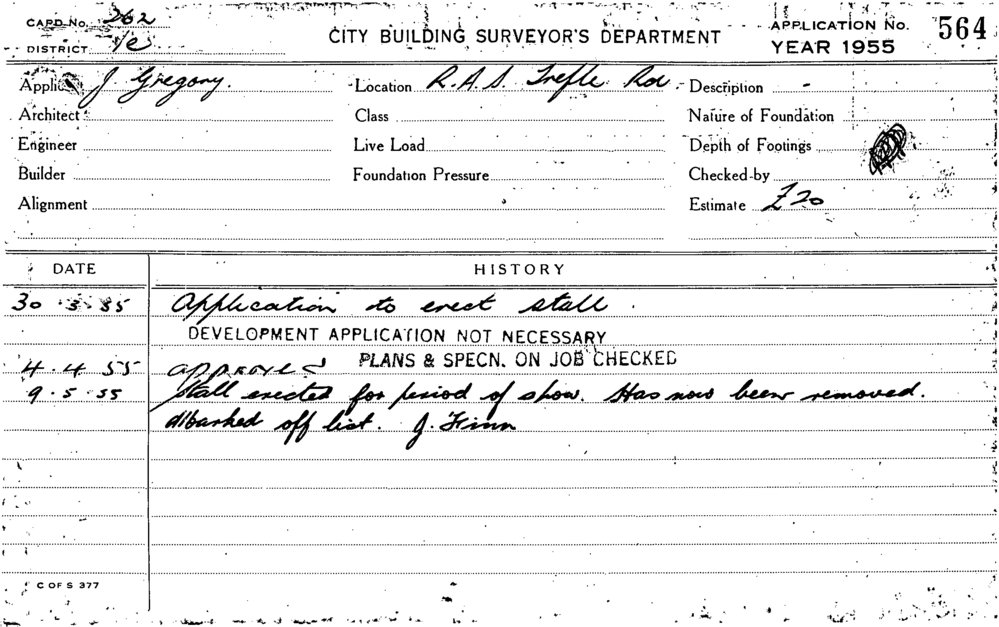 CARD No. 262
DISTRICT 1/e
CITY BUILDING SURVEYOR'S DEPARTMENT
APPLICATION No. 564
YEAR 1955
Applic J Gregory.
Location R.A.S. Trefle Rd
Description
Architect
Class
Nature of Foundation
Engineer
Live Load
Depth of Footings
Builder
Foundation Pressure
Checked by
Alignment
Estimate £20
DATE
HISTORY
30.3.55 Application to erect stall.
DEVELOPMENT APPLICATION NOT NECESSARY
PLANS & SPECN. ON JOB CHECKED
4.4.55 APPROVED
9.5.55 Stall erected for period of show. Has now been removed.
off list. J. Finn
C OF S 377